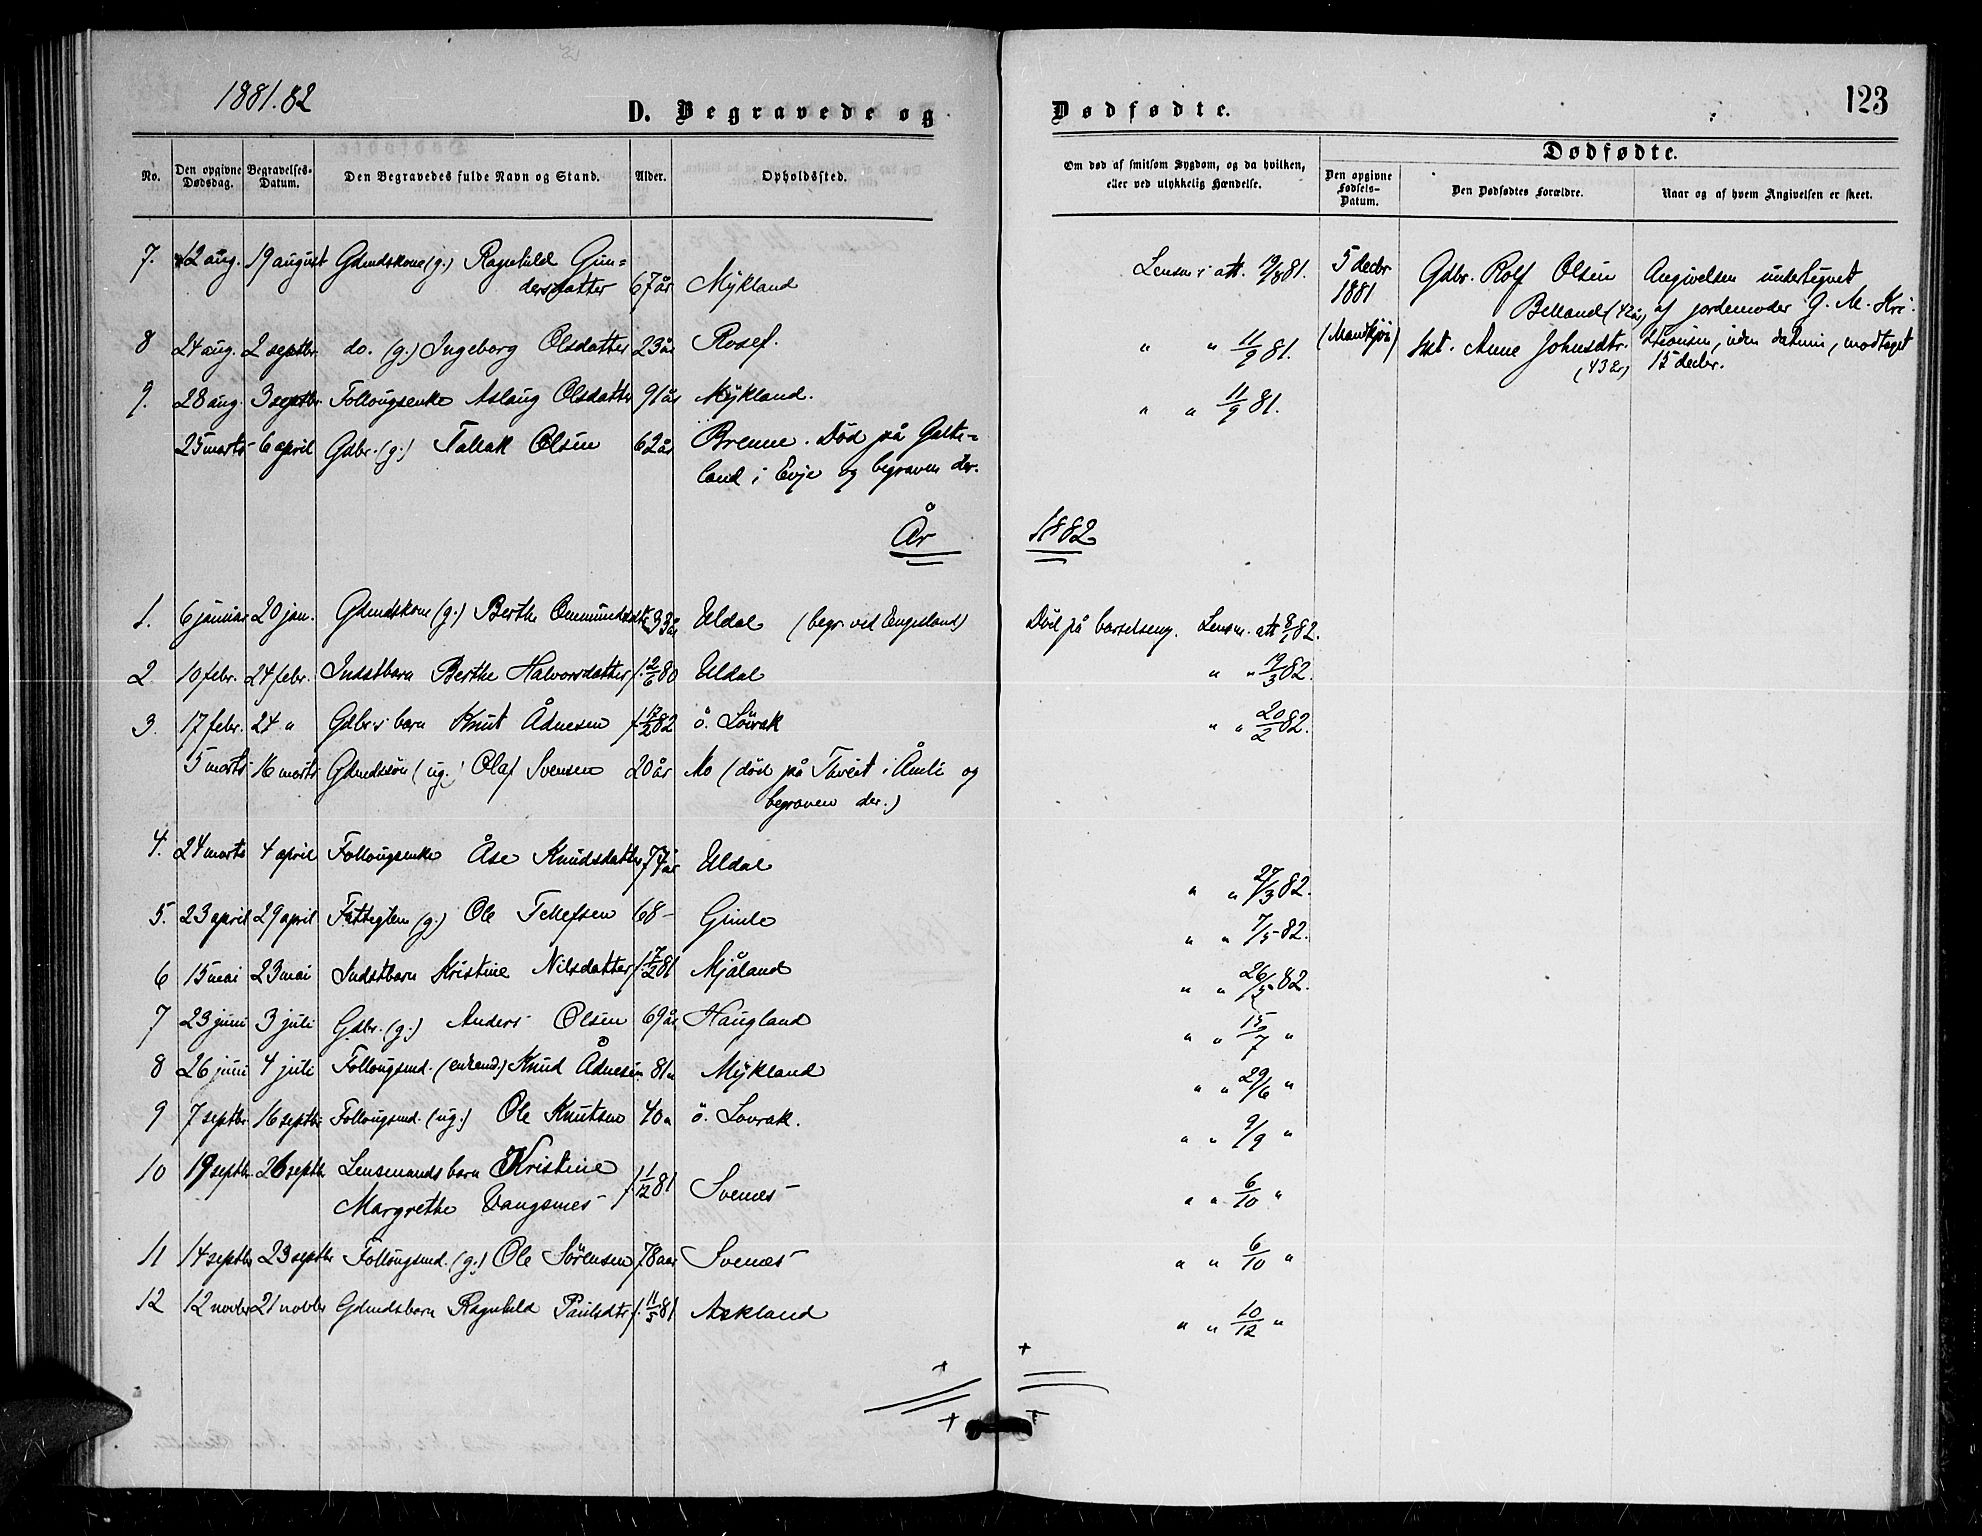 1881.82
D. Begravede og
Dødfødte.
123
No.
Den opgivne Dødsdag.
Begravelses-Datum.
Den Begravedes fulde Navn og Stand.
Alder.
Opholdssted.
Om død af smitsom Sygdom, og da hvilken,
eller ved ulykkelig Hændelse.
Dødfødte.
Den opgivne Fødsels-Datum.
Den Dødfødtes Forældre.
Naar og af hvem Angivelsen er skeet.
7. 12 aug. 19 august Gdmdskone (g.) Ragnhild Gun=
dersdatter 67 år Mykland
Lensm.s att. 19/8 81.
5 decbr 1881 (Mandkjön)
Gdbr. Rolf Olsen
Belland (42 år)
Inst. Anne Johnsdtr.
(43 år)
Angivelsen undertegnet
af jordemoder G. M. Kri-
stiansen, uden datum, modtaget
15 decbr.
8 24 aug. 2 septbr. do. (g.) Ingeborg Olsdatter 23 år " " 11/9 81.
9. 28 aug. 3 septbr Follougsenke Aslaug Olsdatter 91 år Mykland. " " 11/9 81.
25 marts 6 april Gdbr. (g.) Tallak Olsen 62 år Brenne. Död på Galte-
land i Evje og begraven der.
År 1882
1. 6 januar 20 jan. Gdmdskone (g.) Berthe Ommundsdatr 33 år Uldal (begr. ved Engesland) Död på barselseng. Lensm. att 8/1 82.
2 10 febr. 24 febr. Indstbarn Berthe Halvorsdatter f. 2/6 80 Uldal " " 19/3 82.
3. 17 febr. 24 " Gdbr.s barn Knut Ådnesen f. 12/2 82 ö. Lövrak " " 20/2 82.
5 marts 16 marts Gdmdssön (ug.) Olaf Svensen 20 år Mo (död på Tveit i Åmli og
begraven der.)
4. 24 marts 4 april Follougsenke Åse Knudsdatter 74 år Uldal " " 27/3 82.
5. 23 april 29 april Fattiglem (g.) Ole Tellefsen 68 - Gimle " " 7/5 82.
6 15 mai 23 mai Indstbarn Kristine Nilsdatter f. 17/2 81 Mjåland " " 26/5 82.
7 23 juni 3 juli Gdbr. (g.) Anders Olsen 69 år Haugland " " 15/7 "
8 26 juni 4 juli Follougsmd. (enkemd.) Knud Ådnesen 81 " Mykland " " 29/6 "
9 7 septbr. 16 septbr Follougsmd. (ug.) Ole Knutsen 40 " ö. Lovrak. " " 9/9 "
10 19 septbr 26 septbr Lensmandsbarn Kristine
Margrethe Vangsnes f. 1/12 81 Svenes " " 6/10 "
11 14 septbr 23 septbr Follougsmd. (g.) Ole Sörensen 78 aar Svenes " " 6/10 "
12 12 novbr 21 novbr Gdmdsbarn Ragnhild Paulsdtr f. 11/5 81 Askland " " 10/12 "